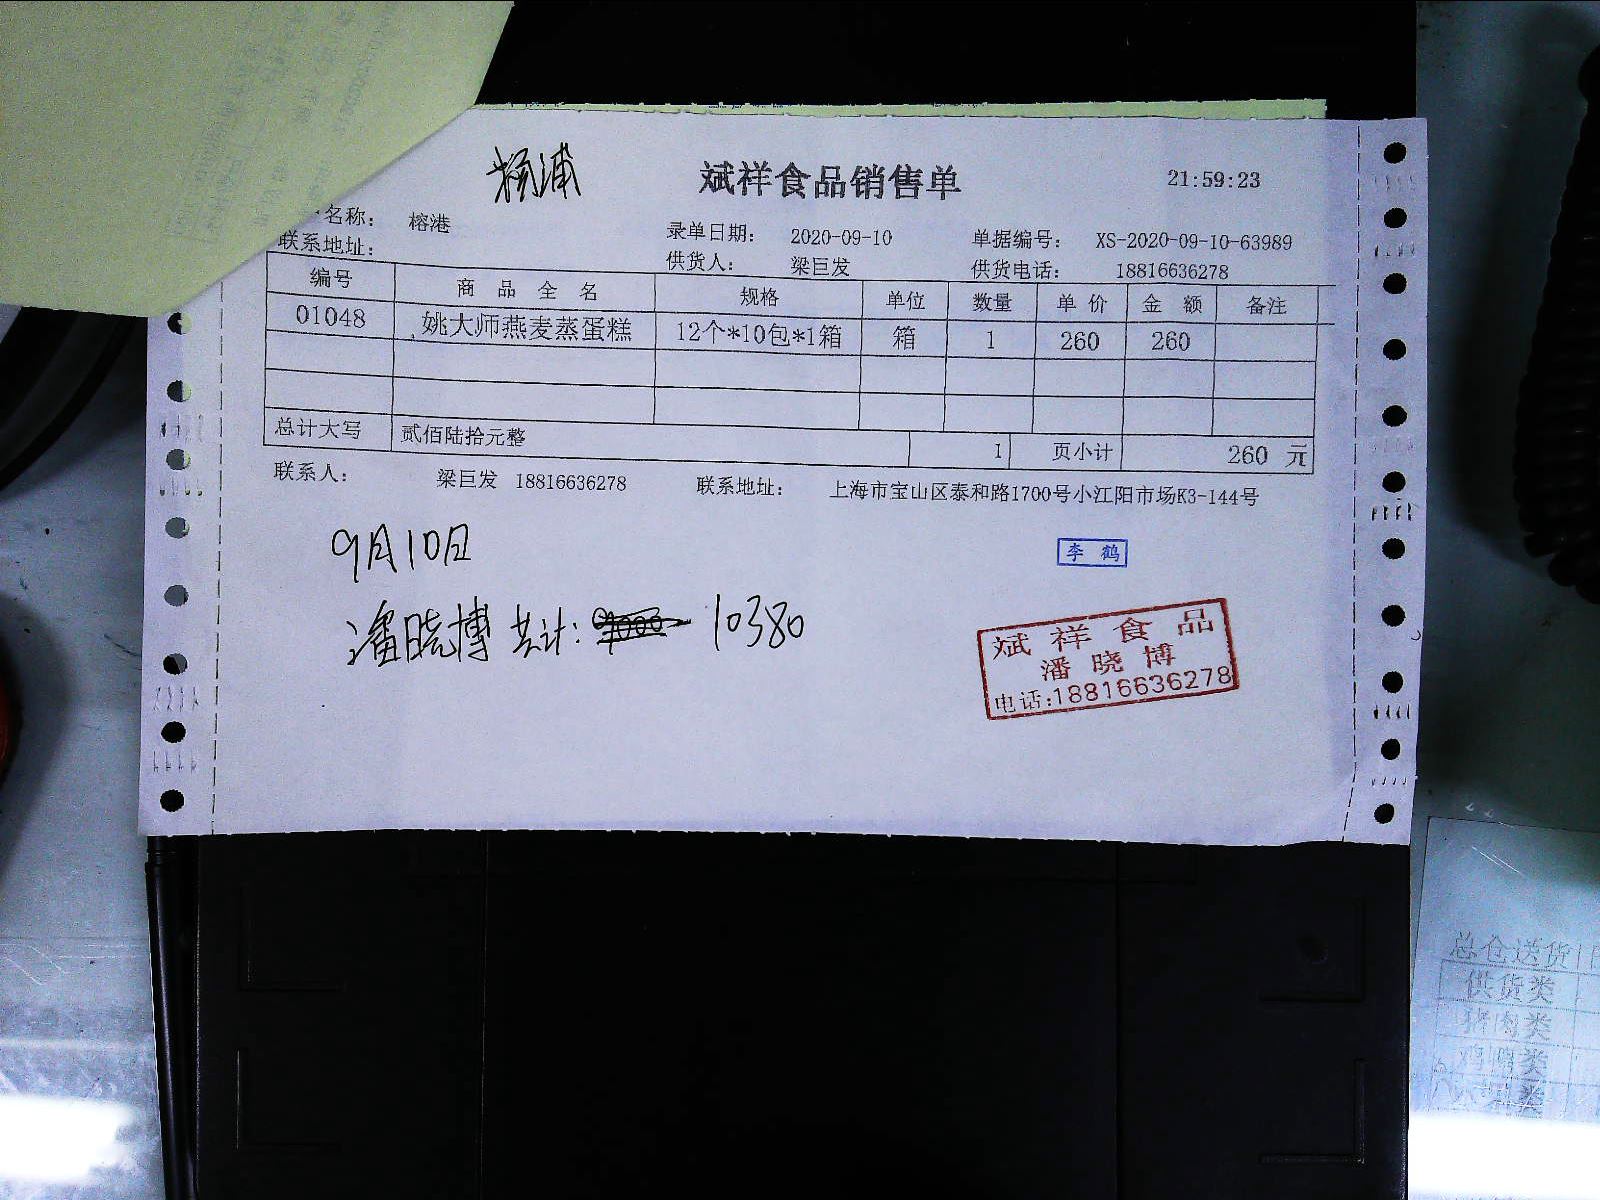 杨浦
斌祥食品销售单
21:59:23
名称： 榕港
录单日期： 2020-09-10
单据编号： XS-2020-09-10-63989
联系地址：
供货人： 梁巨发
供货电话： 18816636278
编号 商品全名 规格 单位 数量 单价 金额 备注
01048 姚大师燕麦蒸蛋糕 12个*10包*1箱 箱 1 260 260
总计大写 贰佰陆拾元整 1 页小计 260 元
联系人： 梁巨发 18816636278 联系地址： 上海市宝山区泰和路1700号小江阳市场K3-144号
9月10日
李鹤
潘晓博 共计： 10380
斌祥食品
潘晓博
电话:18816636278
总仓送货
供货类
猪肉类
鸡鸭类